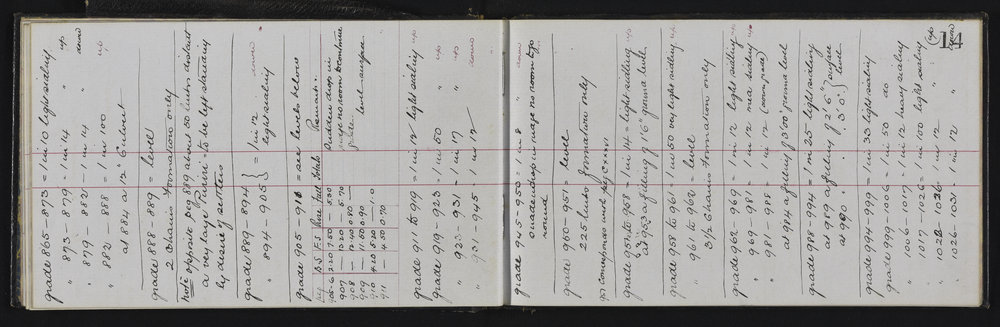 grade 865 - 873 = 1 in 10 light sidling up
" 873 - 879 = 1 in 14 " down
" 879 - 882 - 1 in 14 " up
" 882 - 888 - 1 in 100
at 884 a 12" Culvert
grade 888 - 889 = level
2 Chains formations only
Note opposite peg 889 about 50 links distant
a very large Puriri = to be left standing
by desire of settlers
grade 889 - 894 } = 1 in 12 down
" 894 - 905 } light sidling "
grade 905 - 911 = see levels below
peg B.S F.S Rise Fall Links Remarks
905-6 2.20 7.50 - 5.30 Sudden drop in
907 — 13.20 - 5.70 range no room to continue
908 — 12.40 0.80 grade
909 — 11.50 0.90 level surface
910 4.20 5.20 — 1.0
911 — 4.50 0.70
grade 911 to 919 = 1 in 12 light sidling up
grade 919 - 923 = 1 in 50 " up
" 923 - 931 - 1 in 17 " up
" 931 - 945 - 1 in 12 " down
44
grade 945 - 950 = 1 in 8 " down
Sudden drop in range no room to go
round
grade 950 - 951 = level
225 links formation only
grade 951 to 958 = 1 in 14 = light sidling up
at 953 a filling of 1'6" ground level.
grade 958 to 961 = 1 in 50 very light sidling up
" 961 to 962 = level
3½ Chains formation only
grade 962 - 969 = 1 in 12 light sidling up
" 969 - 981 = 1 in 12 nea sidling up
" 981 - 988 = 1 in 12 down
at 984 a filling of 3'00" ground level
grade 988 - 994 = 1 in 25 light sidling
at 989 a filling of 2'.6" } surface
at 990 " . 3'.0" } level
grade 994 - 999 = 1 in 33 light sidling
grade 999 - 1006 = 1 in 50 do
" 1006 - 1017 = 1 in 12 heavy sidling
" 1017 - 1026 = 1 in 100 light sidling
" 1026 - 1 in 12 " up
" 1026 - 1031 - 1 in 12 " down